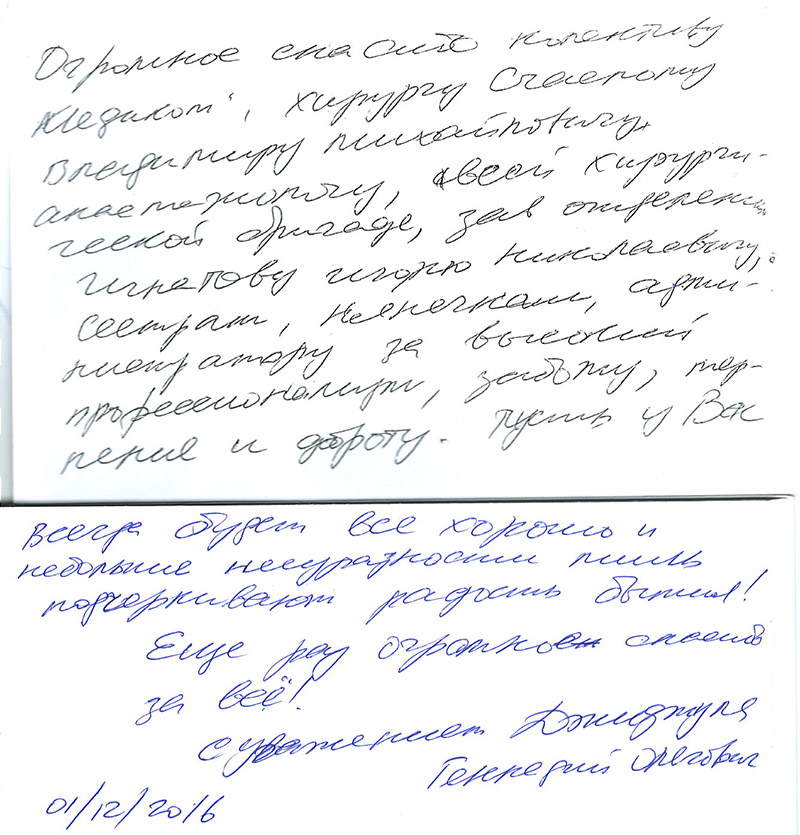 Огромное спасибо колективу
"Медиком", хирургу Счасному
Владимиру Михайловичу,
анестезиологу, всей хирурги-
ческой бригаде, зав отделению
Игнатову Игорю Николаевичу,
сестрам, нянечкам, адми-
нистратору за высокий
профессионализм, заботу, тер-
пение и доброту. Пусть у Вас
всегда будет все хорошо и
небольшие неуразности лишь
подчеркивают радость бытия!
Еще раз огромное спасибо
за всё!
С уважением
Геннадий Олегович
01/12/2016